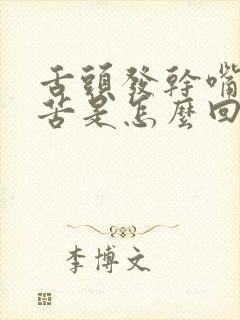 舌頭發幹嘴
苦是怎麼回
李博文